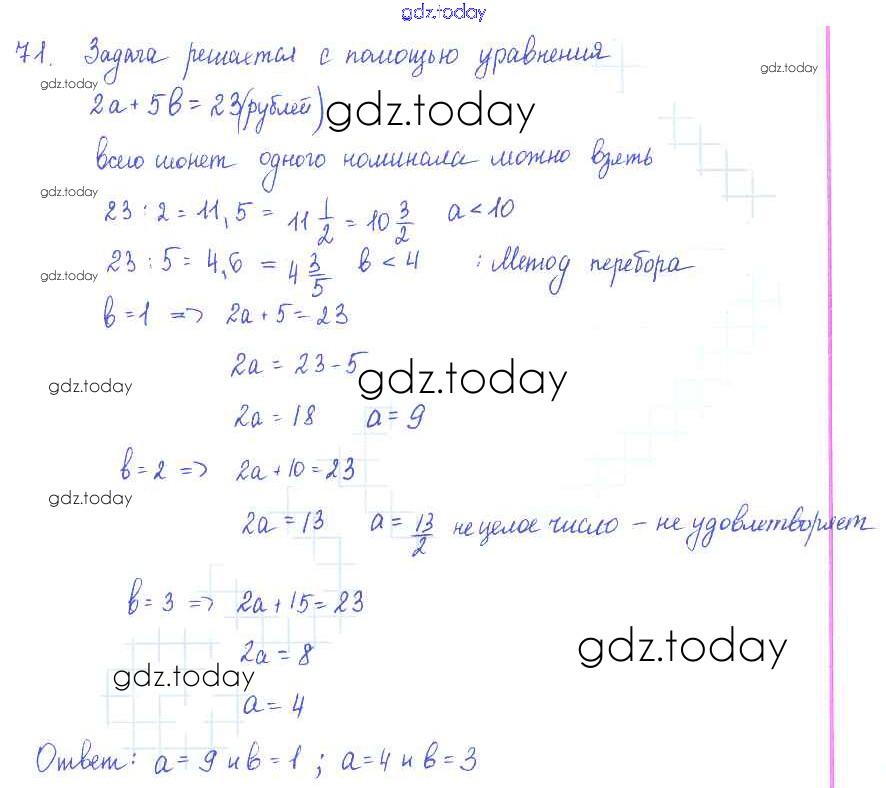 gdz.today
71. Задача решается с помощью уравнения
gdz.today
gdz.today
2a + 5в = 23(рублей) gdz.today
всего монет одного номинала можно взять
gdz.today
23 : 2 = 11,5 = 11 1/2 = 10 3/2 a < 10
gdz.today
23 : 5 = 4,6 = 4 3/5 в < 4 : Метод перебора
в = 1 => 2a + 5 = 23
2a = 23 - 5
gdz.today
gdz.today
2a = 18 a = 9
в = 2 => 2a + 10 = 23
gdz.today
2a = 13 a = 13/2 не целое число – не удовлетворяет
в = 3 => 2a + 15 = 23
2a = 8
gdz.today
gdz.today
a = 4
Ответ: a = 9 и в = 1 ; a = 4 и в = 3